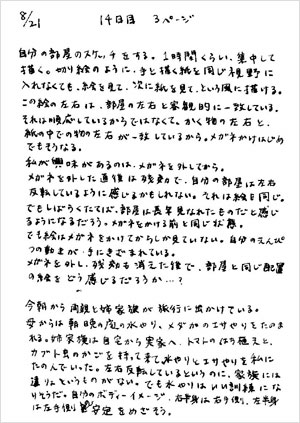 8/21 14日目 3ページ
自分の部屋のスケッチをする。1時間くらい、集中して
描く。切り絵のように、手と描く紙と同じ視野に
入れなくても、絵を見て、次に紙を見て、という風に描ける。
この絵の左右は、部屋の左右と客観的に一致している。
それは順応しているからではなくて。かく物の左右と、
紙の中での物の左右が一致しているから。メガネかけはじめ
でもそうなる。
私が興味があるのは、メガネを外してから。
メガネを外した直後は残効で、自分の部屋は左右
反転しているように感じるかもしれない。それは絵も同じ。
でもしばらくたてば、部屋は長年見なれたものだと感じ
るようになるだろう。メガネをかける前と同じ状態。
でも絵はメガネをかけてからしか見ていない。自分のえんぴ
つの動きが、手にきざまれている。
メガネを外し、残効も消えた後で、部屋と同じ配置
の絵をどう感じるだろうか…?
今朝から両親と姉家族が旅行に出かけている。
母からは朝晩の庭の水やり、メダカのエサやりをたのま
れる。姉家族は自宅から実家へ、トマトのはち植えと、
カブト虫のかごを持って来て水やりとエサやりを私に
たのんでいった。左右反転しているというのに、家族には
遠りょというものがない。でも水やりはいい訓練にな
りそうだ。自分のボディーイメージ、右半身は右手側、左半身
は左手側 安定をめざそう。